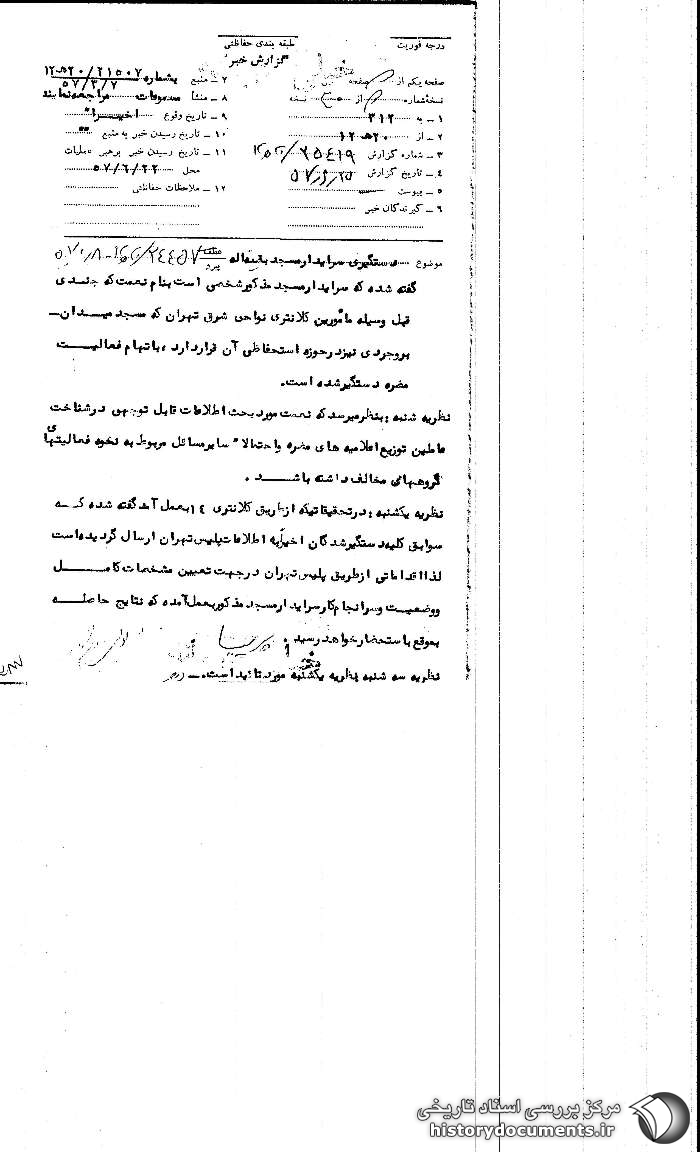 درجه فوریت
طبقه بندی حفاظتی
"گزارش خبر"
صفحه یکم از صفحه
نسخه شماره از نسخه
۱ ـ به ۳۱۲
۲ ـ از ۲۰ه‍ ۱۲
۳ ـ شماره گزارش
۴ ـ تاریخ گزارش
۵ ـ پیوست
۶ ـ گیرندگان خبر
۷ ـ منبع بشماره ۲۱۵۰۷/ ۲۰ه‍ ۱۲
۵۷/۳/۷
۸ ـ منشأ مسموعات مراجعه نمایند
۹ ـ تاریخ وقوع اخیراً
۱۰ ـ تاریخ رسیدن خبر به منبع "
۱۱ ـ تاریخ رسیدن خبر برهبر عملیات
محل ۵۷/۶/۲۲
۱۲ ـ ملاحظات حفاظتی
موضوع دستگیری سرایدار مسجد
گفته شده که سرایدار مسجد مذکور شخصی است بنام نعمت که چندی
قبل وسیله مأمورین کلانتری نواحی شرق تهران که مسجد میدان ـ
بروجردی نیز در حوزه استحفاظی آن قرار دارد ، باتهام فعالیت
مضره دستگیر شده است.
نظریه شنبه : بنظر میرسد که نعمت مورد بحث اطلاعات قابل توجهی در شناخت
عاملین توزیع اعلامیه های مضره و احتمالا" سایر مسائل مربوط به نحوه فعالیتهای
گروههای مخالف داشته باشد .
نظریه یکشنبه : در تحقیقاتیکه از طریق کلانتری ۱۴ بعمل آمد گفته شده که
سوابق کلیه دستگیرشدگان اخیراً به اطلاعات پلیس تهران ارسال گردیده است
لذا اقداماتی از طریق پلیس تهران در جهت تعیین مشخصات کامل
و وضعیت و سرانجام کار سرایدار مسجد مذکور بعمل آمده که نتایج حاصله
بموقع باستحضار خواهد رسید .
نظریه سه شنبه نظریه یکشنبه مورد تائید است.
مرکز بررسی اسناد تاریخی
historydocuments.ir